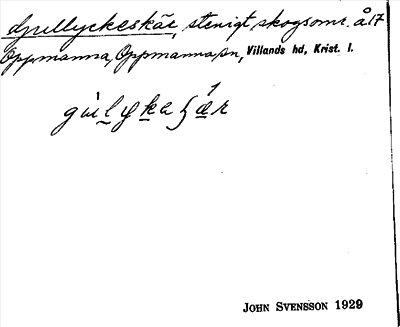 djullyckeskär, stenigt skogsomr. å 17
Oppmanna, Oppmanna sn, Villands hd, Krist. l.
JOHN SVENSSON 1929